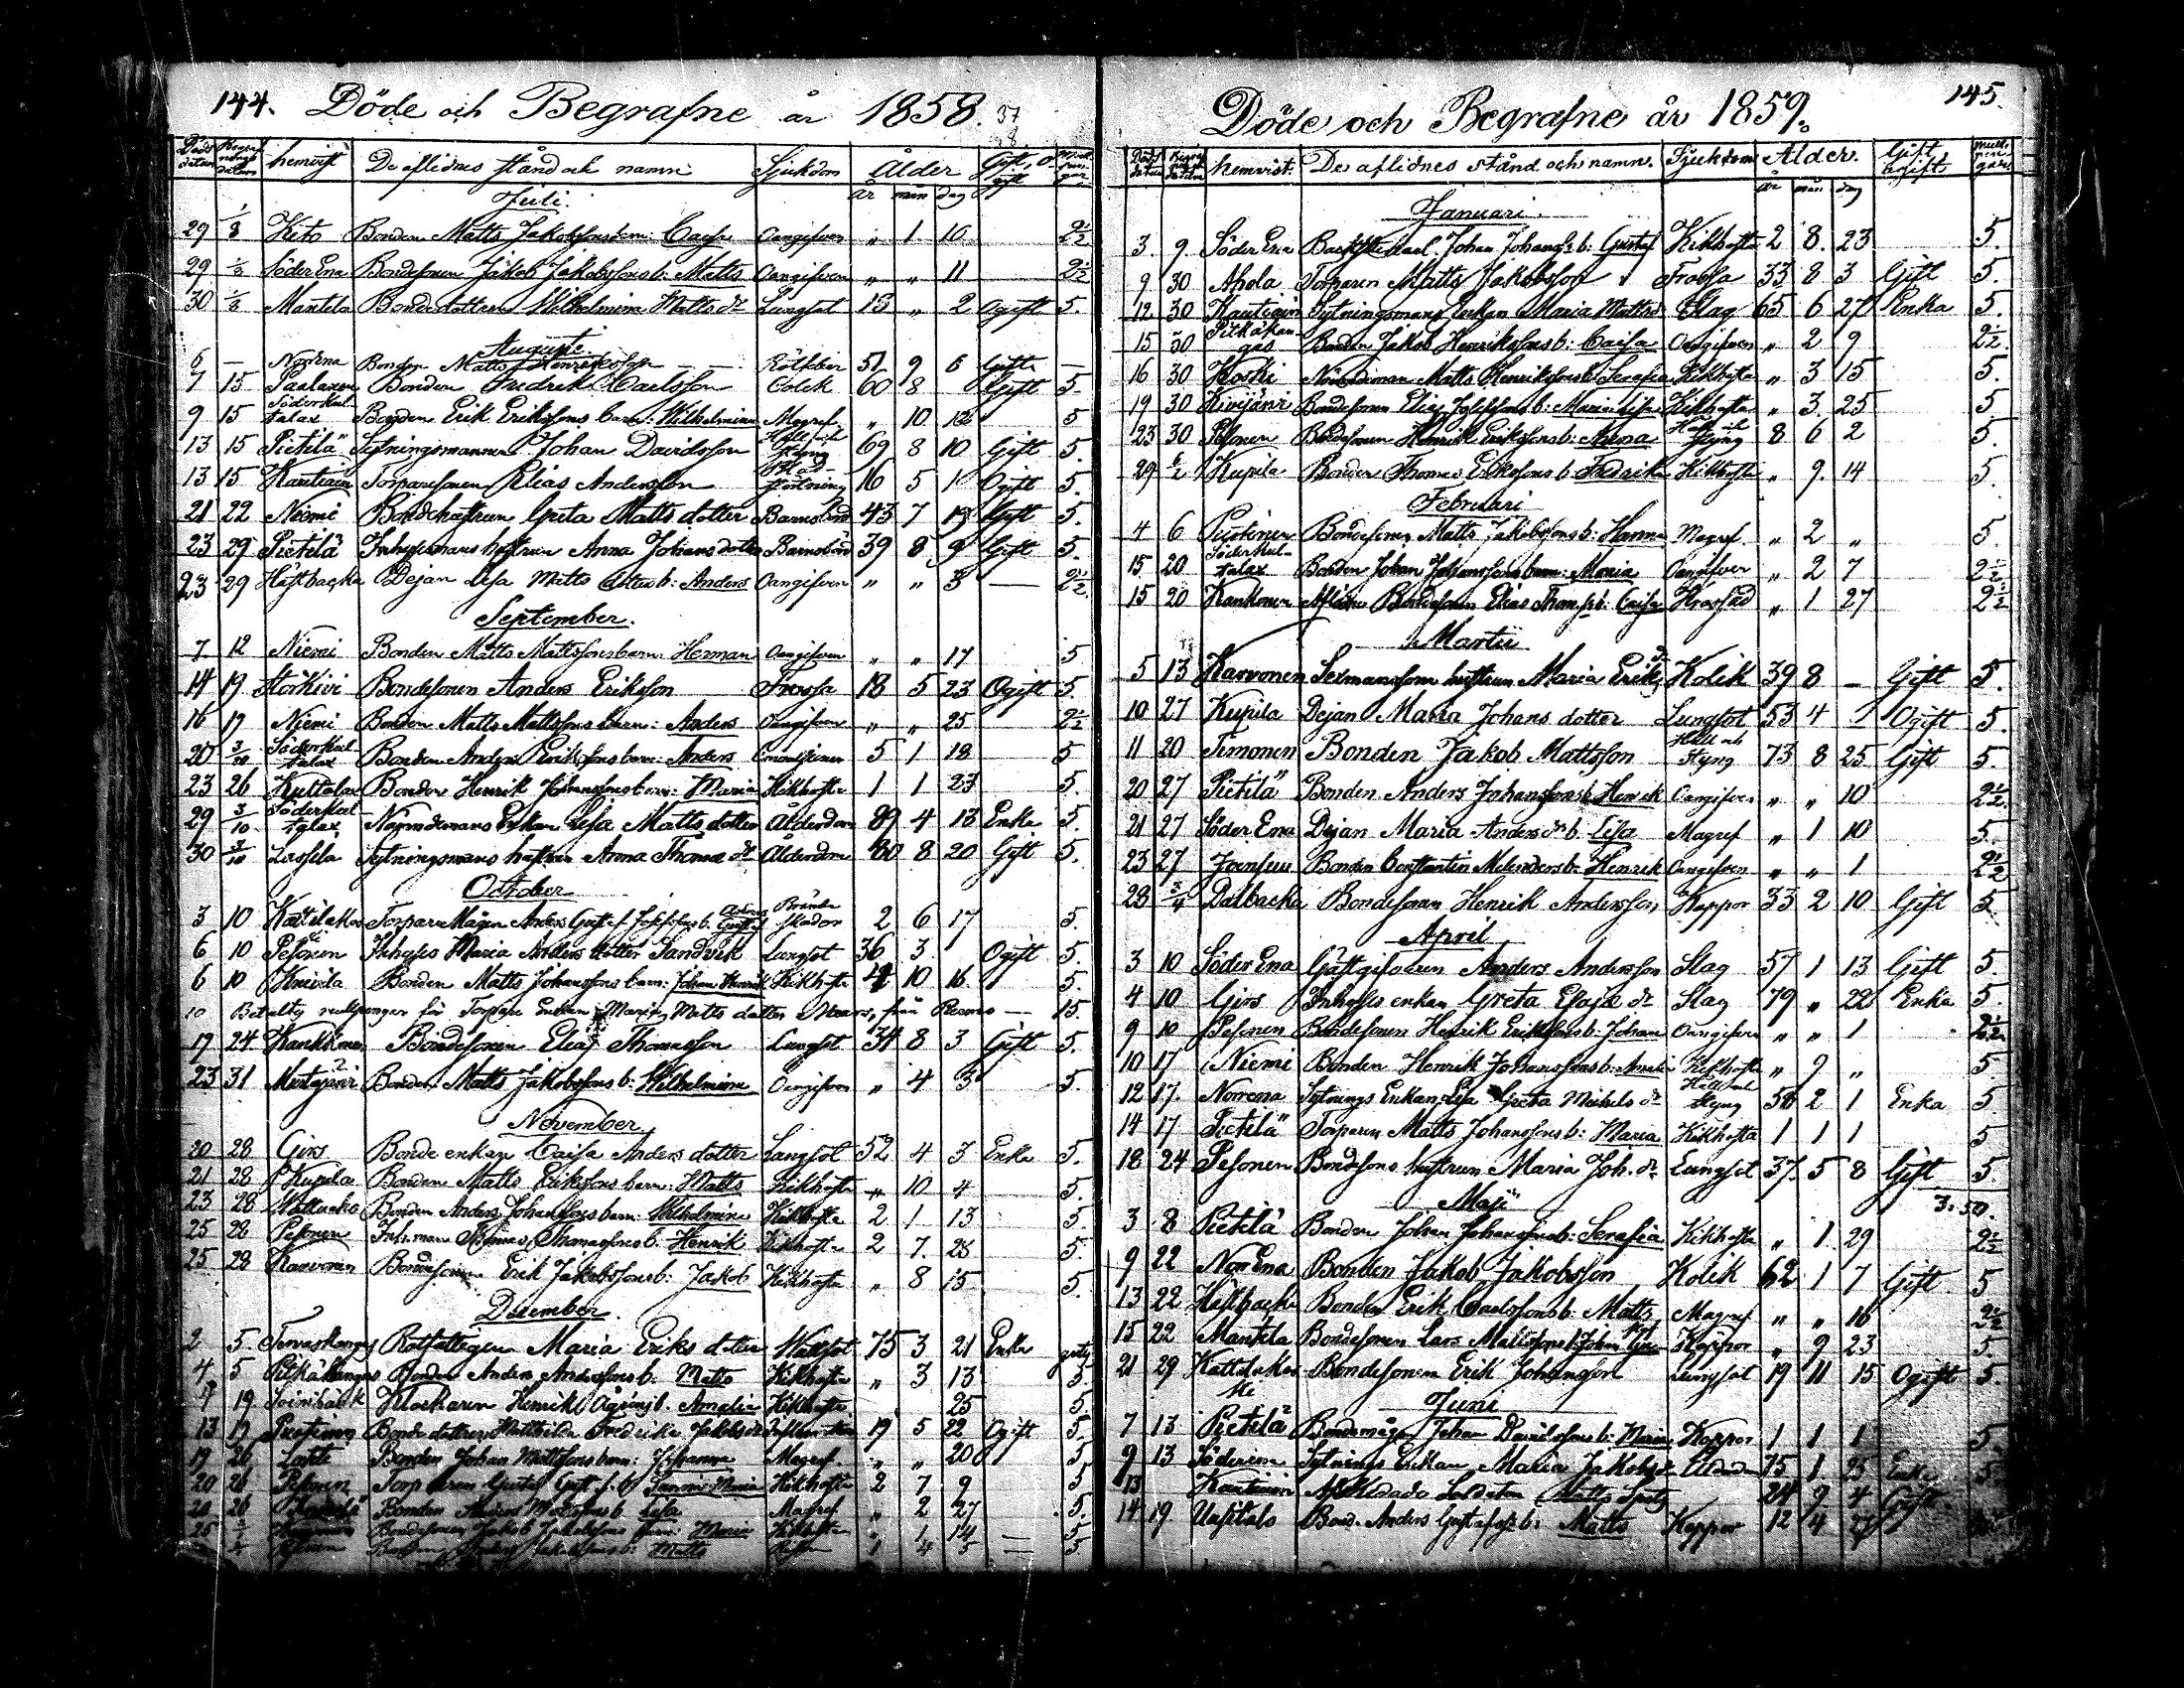 144. Döde och Begrafne år 1858. 37
Döds datum Begrafnings datum hemvist De aflidnes stånd och namn Sjukdom Ålder Gift, ogift
år mån dag
Juli.
29 1/8 Keto Bonden Matts Jakobssons barn: Caisa Oangifven " 1 10 2½
29 1/8 Söder Ena Bondesonen Jakob Jakobssons b: Matts Oangifven " " 11 2½
30 1/8 Mantela Bondedottren Wilhelmina Matts dr Lungsot 13 " 2 Ogift 5.
Augusti
6 — Norrena Bonden Matts Henriksson Rötfeber 51 9 6 Gift —
7 15 Paalanen Bonden Fredrik Carlsson Colik 60 8 Gift 5.
9 15 Söderkultalax Bonden Erik Erikssons barn: Wilhelmina Magref " 10 12 5
13 15 Pietilä Sytningsmannen Johan Davidsson Håll och Styng 69 8 10 Gift 5.
13 15 Kautiain Torparesonen Elias Andersson 16 5 1 Ogift 5.
21 22 Niemi Bondehustrun Greta Matts dotter Barnsbörd 43 7 19 Gift 5.
23 29 Pietilä Inhysesmans hustrun Anna Johans dotter Barnsbörd 39 8 9 Gift 5.
23 29 Hästbacka Dejan Lisa Matts dotters b: Anders Oangifven " " 3 — 2½
September.
7 12 Niemi Bonden Matts Mattssons barn: Herman Oangifven " " 17 5
14 19 Storkivi Bondesonen Anders Eriksson Frossa 18 5 23 Ogift 5.
16 19 Niemi Bonden Matts Mattssons barn: Anders Oangifven " " 25 2½
20 3/10 Söderkultalax Bonden Anders Erikssons barn: Anders 5 1 18 5
23 26 Kultalax Bonden Henrik Johanssons barn: Maria Kikhosta 1 1 23 5.
29 3/10 Söderkultalax Nämndemans Enkan Lisa Matts dotter Ålderdom 89 4 13 Enka 5.
30 3/10 Lassila Sytningsmans hustrun Anna Thomas dr Ålderdom 80 8 20 Gift 5.
October
3 10 Kattilakoski Torparemågen Anders Gust:f Josefssons b: Anders Gustaf Bränskador 2 6 17 5.
6 10 Pesonen Inhyses Maria Anders dotter Sandvik Lungsot 36 3 Ogift 5.
6 10 Knivila Bonden Matts Johanssons barn: Johan Henrik Kikhosta 4 10 16 5.
10 Betalty mullpengar för Torpare Enkan Maria Matts dotter från Perno — 15.
17 24 Kaukkonen Bondesonen Elias Thomasson Lungsot 34 8 3 Gift 5.
23 31 Mustajärvi Bonden Matts Jakobssons b: Wilhelmina Oangifven " 4 3 5
November.
20 28 Girs Bonde enkan Caisa Anders dotter Lungsot 52 4 3 Enka 5.
21 28 Kupila Bonden Matts Erikssons barn: Matts Kikhosta " 10 4 5.
23 28 Bonden Anders Johanssons barn: Wilhelmina Kikhosta 2 1 13 5.
25 28 Pesonen Inh.man Thomas Thomassons b. Henrik Kikhosta 2 7. 23 5.
25 28 Karvonen Bondesonen Erik Jakobssons b: Jakob Kikhosta " 8 15 5.
December
2 5. Torvaskangas Rotfattigen Maria Eriks dotter Wattsot 75 3 21 Enka gratis
4 5 Pitkäkangas Bonden Anders Anderssons b: Matts Kikhosta " 3 13 5.
7 19 Soinibäck Klockaren Henrik Ågrens b. Amalia Kikhosta 25 5.
13 19 Puutinen Bondedottren Mathilda Fredrika Jakobs dr 19 5 22 Ogift 5.
19 26 Lantto Bonden Johan Mattssons barn: Johanna Magref " " 20 5
20 26 Pesonen Torparen Gustaf Gust:f. b: Maria Kikhosta 2 7 9 5
20 26 Bonden Anders Mattssons b: Lisa Magref " 2 27 5.
25 Bondesonen Jakob Jakobssons barn: Maria Kikhosta " 1 14 — 5
Matts 1 4 5 — 5
Döde och Begrafne år 1859. 145.
Döds datum Begrafnings datum hemvist. De aflidnes stånd och namn. Sjukdom Ålder. Gift ogift mullpengar.
år mån dag
Januari.
3. 9. Söder Ena Johan Johanss: b: Gustaf Kikhosta 2 8. 23 5.
9 30 Ahola Torparen Matts Jakobsson Frossa 33 8 3 Gift 5.
12 30 Kautiain Sytningsmans Enkan Maria Mattsd. Slag 65 6 27 Enka 5.
15 30 Pitkäkangas Bonden Jakob Henrikssons b: Caisa Oangifven " 2 9 2½.
16 30 Koski Nämndeman Matts Henrikssons b: Serafia Kikhosta " 3 15 5.
19 30 Kivijärvi Bondesonen Elias Josefssons b: Maria Lisa Kikhosta " 3. 25 5.
23 30 Pesonen Bondesonen Henrik Erikssons b: Anna Håll och Styng 8 6 2 5.
29 6/2 Kupila Bonden Thomas Erikssons b: Fredrik Kikhosta " 9. 14 5.
Februari
4 6 Puutinen Bondesonen Matts Jakobssons b: Hanna Magref. " 2 " 5.
15 20 Söderkultalax Bonden Johan Johanssons barn: Maria Oangifven " 2 7 2½
15 20 Kaukonen Aflidne Bondesonen Elias Thomss: b: Caisa " 1 27 2½
Martii
5 13 Karvonen Sexmanssons hustrun Maria Eriksd. Kolik 39 8 — Gift 5.
10 27 Kupila Dejan Maria Johans dotter Lungsot 53 4 1 Ogift 5.
11 20 Timonen Bonden Jakob Mattsson Håll och Styng 73 8 25 Gift 5.
20 27 Pietilä Bonden Anders Johanssons b: Henrik Oangifven " " 10 2½.
21 27 Söder Ena Dejan Maria Anders dr b. Lisa Magref " 1 10 5.
23 27 Joensuu Bonden Constantin Melenders b: Henrik Oangifven " " 1 2½
28 3/4 Dalbacka Bondesonen Henrik Andersson Koppor 33 2 10 Gift 5.
April
3 10 Söder Ena Gästgifvaren Anders Andersson Slag 57 1 13 Gift 5.
4 10 Girs Inhyses enkan Greta Esaja dr Slag 79 " 22 Enka 5.
9 10 Pesonen Bondesonen Henrik Erikssons b: Johan Oangifven " " 1 2½
10 17 Niemi Bonden Henrik Johanssons b: Amalia Kikhosta " 9 " 5
12 17. Norrena Sytnings Enkan Lisa Greta Mickels dr Håll och Styng 58 2 1 Enka 5.
14 17 Pietilä Torparen Matts Johanssons b: Maria Kikhosta 1 1 1 5
18 24 Pesonen Bondesons hustrun Maria Joh. dr Lungsot 37. 5 8 Gift 5.
3:50.
Maji
3 8 Pietilä Bonden Johan Johanssons b: Serafia Kikhosta " 1 29 2½
9 22 Norr Ena Bonden Jakob Jakobsson Kolik 62 1 7 Gift 5
13 22 Hästbacka Bonden Erik Carlssons b: Matts Magref " " 16 2½
15 22 Mantela Bondesonen Lars Mattssons b: Johan Koppor " 9 23 5.
21 29 Kattilakoski Bondesonen Erik Johansson Lungsot 19 11 15 Ogift 5.
Juni
7 13 Pietilä Bondemågen Johan Davidssons b: Maria Koppor 1 1 1 5
9 13 Söderena Sytnings Enkan Maria Jakobs dr 75 1 25 Enka 5
13 Kautiain Afskedade Soldaten Matts 24 9 4 Gift
14 19 Uusitalo Bond. Anders Gustafss: b: Matts Koppor 12 4